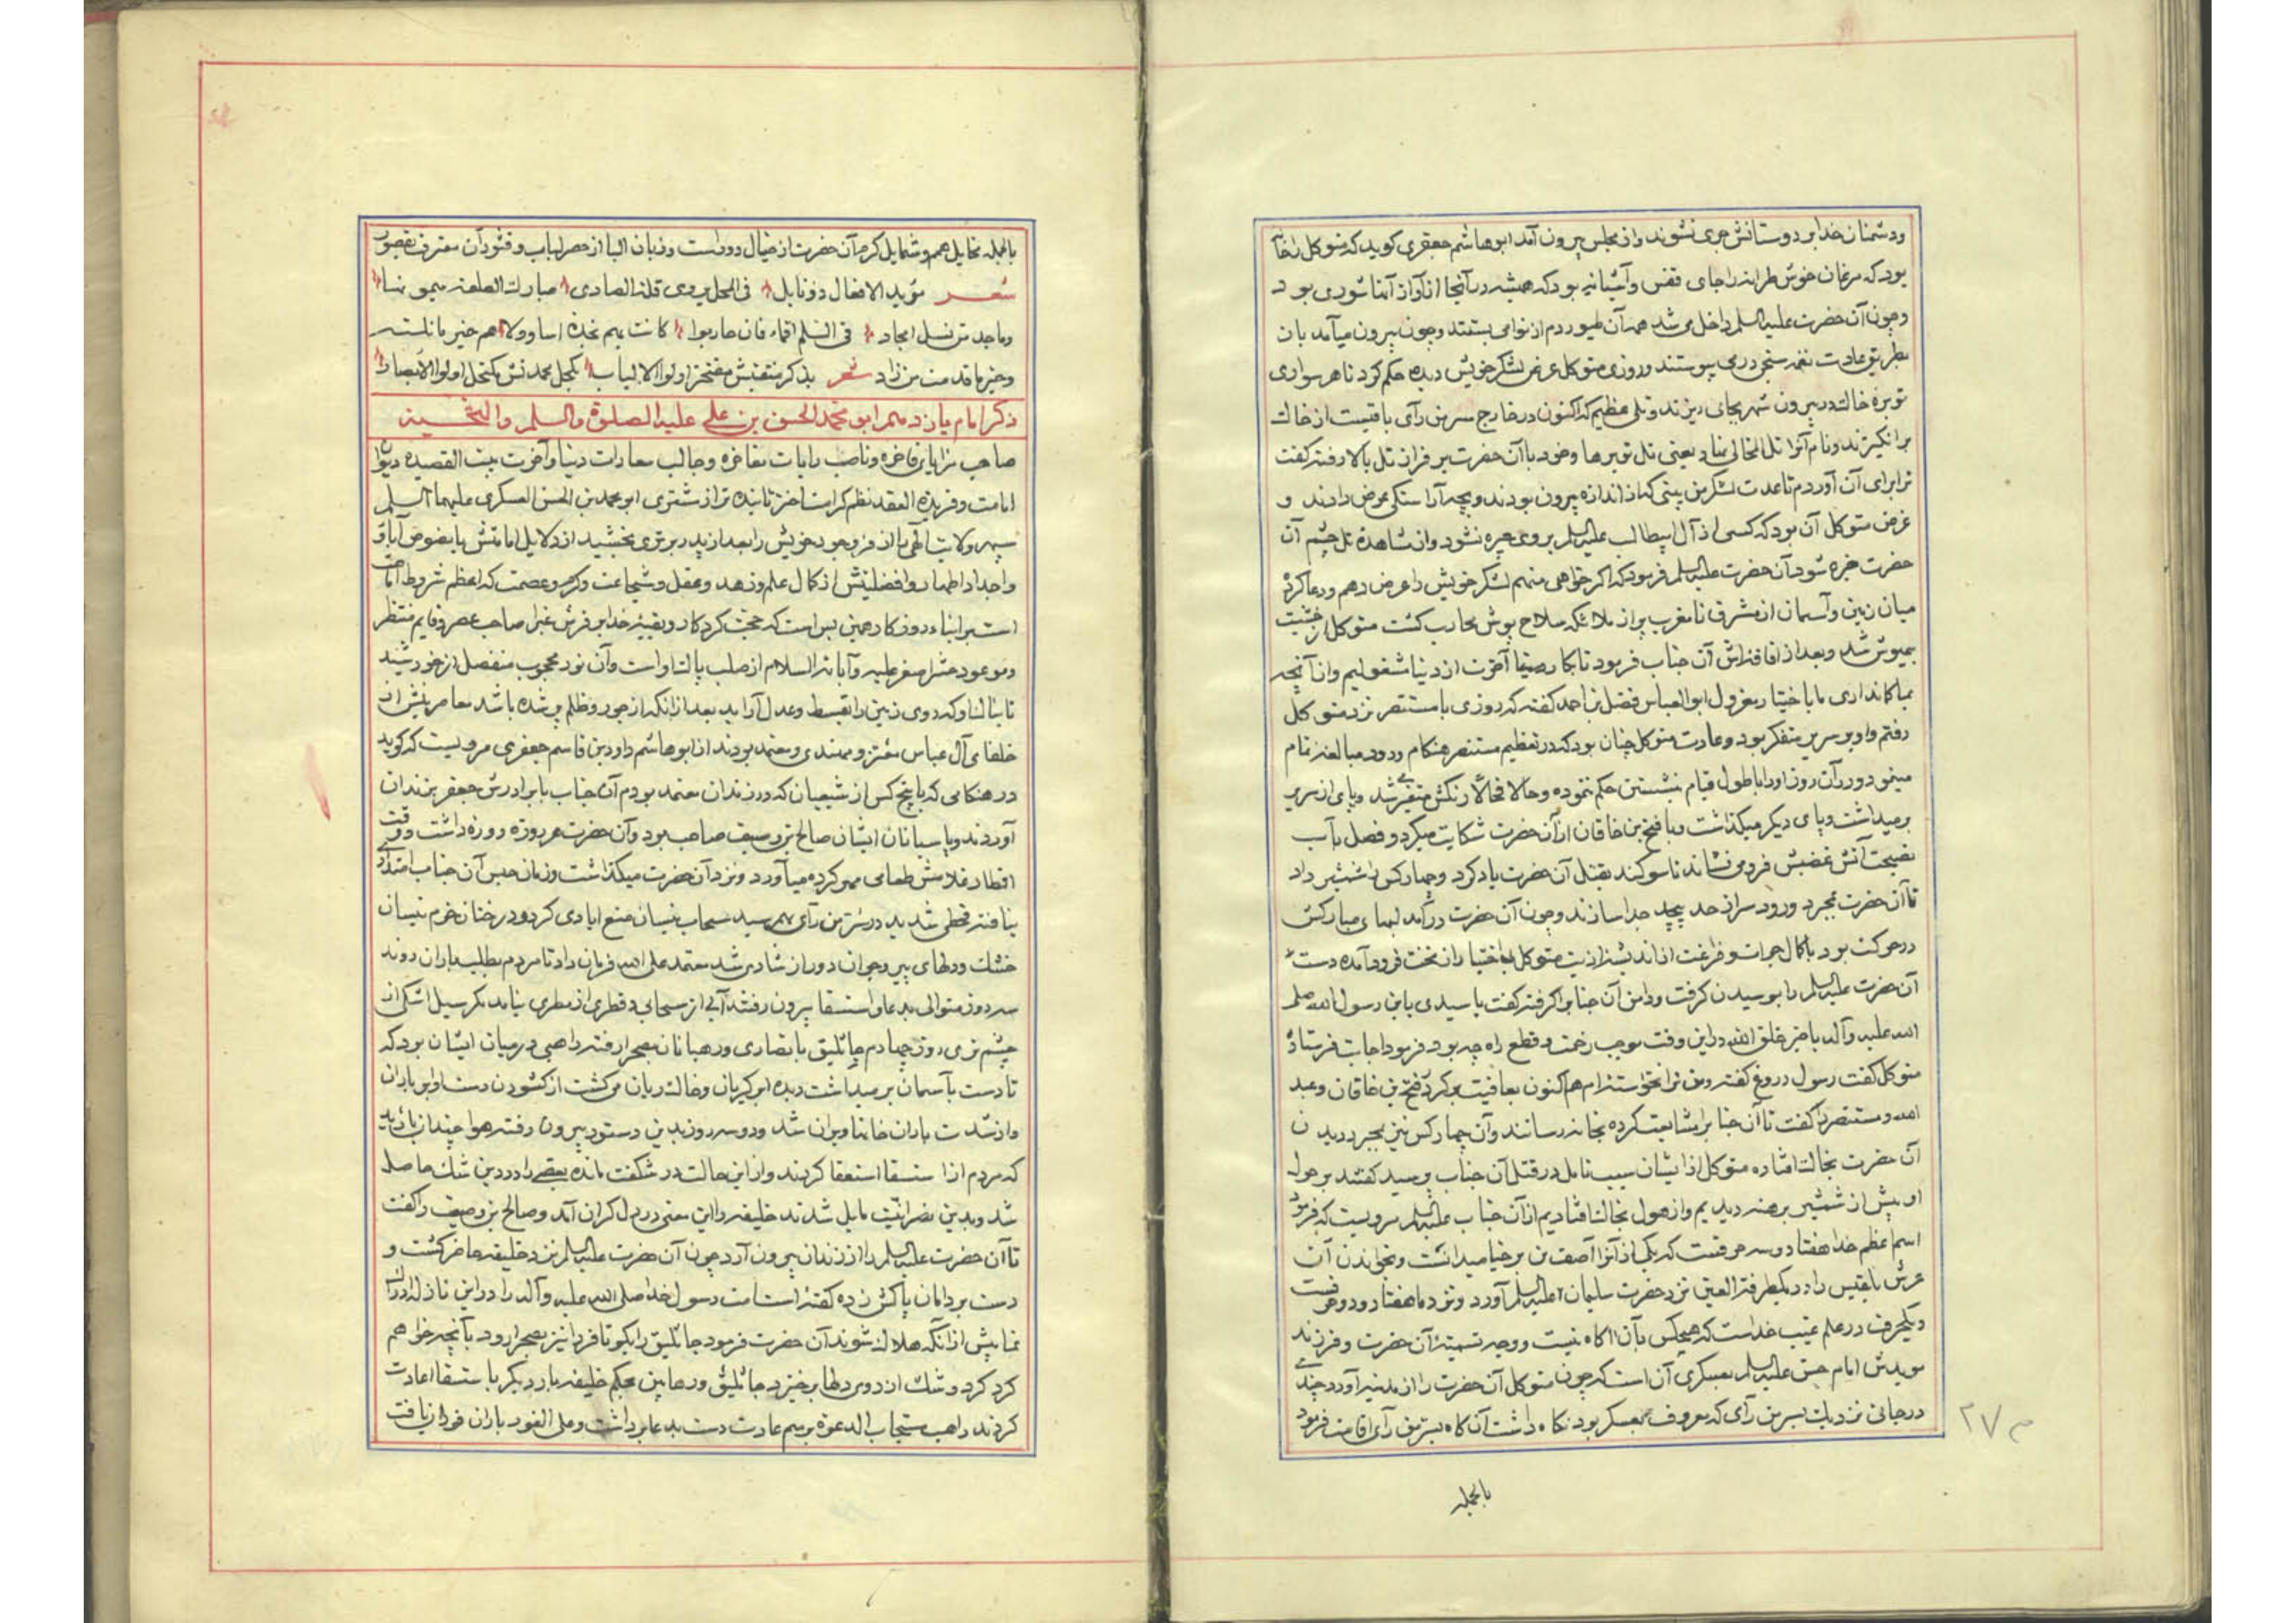 ودشمنان خدا بر دوستانش جری نشوند واز مجلس بیرون آمد ابوهاشم جعفری کوید که متوکل را خانه
بود که مرغان خوش طرانه را جای قفس وآشیانه بود که همیشه در آنجا از آواز آنها شوری بود
وچون آن حضرت علیه السلم داخل می شد همه آن طیور دم از نوا می بستند وچون بیرون میآمد بان
بطریق عادت نغمه سنجی در می پیوستند وروزی متوکل عرض لشکر خویش دیده حکم کرد تا هر سواری
توبره خاک در بیرون شهر بجای ریزند وتلی عظیم که اکنون در خارج سر من رآی باقیست از خاک
برانکیزند ونام آنرا تل المخالی نهاد یعنی تل توبرها وخود با آن حضرت بر فراز تل بالا رفته کفت
ترا برای آن آوردم تا عدت لشکر من بینی که از اندازه بیرون بودند وبجه آراستکی عرض دادند و
غرض متوکل آن بود که کسی از آل ابیطالب علیه السلم بر وی چیره نشود واز مشاهده تل چشم آن
حضرت خیره شود آن حضرت علیه السلم فرمود که اکر خواهی منهم لشکر خویش را عرض دهم ودعا کرد
میان زمین وآسمان از مشرق تا مغرب پر از ملائکه سلاح پوش محارب کشت متوکل از خشیت
بیهوش شد وبعد از افاقه اش آن جناب فرمود تا بکار صفای آخرت از دنیا مشغولیم واز آنچه
بما کمانداری مابا ختیار معزول ابوالعباس فضل بن احمد کفته که روزی با مستنصر نزد متوکل
رفتم واو بر سریر متفکر بود وعادت متوکل چنان بود که در تعظیم مستنصر هنکام ورود مبالغه تمام
مینمود ودر آن روز اورا باطول قیام بنشستن حکم ننموده وحالا فحالا رنکش متغیر می شد وپای از سریر
برمیداشت وپای دیکر میکذاشت وبا فتح بن خاقان از آن حضرت شکایت میکرد وفضل بآب
نصیحت آتش غضبش فرو می نشاند تا سوکند بقتل آن حضرت یاد کرد وچهار کس را شمشیر داد
تا آن حضرت بمجرد ورود سر از جسد جدا سازند وچون آن حضرت در آمد لبهای مبارکش
در حرکت بود باکمال جرات وفراغت از اندیشه اذیت متوکل بی اختیار از تخت فرود آمده دست
آن حضرت علیه السلم را بوسیدن کرفت ودامن آن جناب را کرفته کفت یا سیدی یا بن رسول الله صلی
الله علیه وآله یا خیر خلق الله در این وقت موجب زحمت وقطع راه چه بود فرمود اجابت فرستاده
متوکل کفت رسول دروغ کفته ومن ترا نخواسته ام هم اکنون بعافیت برکرد فتح بن خاقان وعبد
الله ومستنصر را کفت تا آن جناب را مشایعت کرده بخانه رسانند وآن چهار کس نیز بمجرد دیدن
آن حضرت بخاک افتاده متوکل از ایشان سبب تامل در قتل آن جناب پرسید کفتند بر حول
او بیش از شمشیر برهنه دیدیم واز هول بخاک افتادیم از آن جناب علیه السلم مرویست که فرمود
اسم اعظم خدا هفتاد وسه حرفست که یکی از آنرا آصف بن برخیا میدانست وبخواندن آن
عرش بلقیس را در یکطرفة العین نزد حضرت سلیمان علیه السلم آورد ونزد ما هفتاد ودو حرفست
ویکحرف در علم غیب خداست که هیچکس بآن آکاه نیست ووجه تسمیة آن حضرت وفرزند
مویدش امام حسن علیه السلم بعسکری آن است که چون متوکل آن حضرت را از مدینه آورد چندی
در جائی نزدیک بسر من رآی که معروف بعسکر بود نکاه داشت آنکاه بسر من رآی اقامت فرمود
بالجمله
م ۲۷
بالجمله مخایل همم وشمایل کرم آن حضرت از خیال دور است وزبان البا از حصر لباب وقشور آن معترف بقصور
شعر مؤید الافعال ذو نایل فی المحل یروی قلة الصادی مبارک الطلعة میمونها
وماجد من نسل امجاد فی السلم اقماء فان حاربوا کانت بهم نجدة اساد ولاهم خیر ما نلته
وخیر ما قدمت من زاد شعر بذکر منقبتش مفتخر اولوا الالباب بکحل محمدتش مکتحل اولوا الابصار
ذکر امام یازدهم ابو محمد الحسن بن علی علیه الصلوة والسلم والتحیة
صاحب مزایای فاخره وناصب رایات مفاخره وجالب سعادات دنیا وآخرت بیت القصیده دیوان
امامت وفریدة العقد نظم کرامت اختر تابنده تر از مشتری ابو محمد بن الحسن العسکری علیهما السلم
سپهر ولایت آلهی را از فر وجود خویش را بعد از پدر برتری بخشید از دلایل امامتش با نصوص آباء
واجداد اطهار وافضلیتش از کمال علم وزهد وعقل وشجاعت وکرم وعصمت که اعظم شروط امامت
است بر ابناء روزکار همین بس است که حجت کردکار وبقیة خدا بر فرش غبرا صاحب عصر وقایم منتظر
وموعود منتظر علیه وآبائه السلام از صلب پاک اوست وآن نور محجوب منفصل از خورشید
تابناک او که روی زمین را بقسط وعدل آراید بعد از انکه از جور وظلم پر شده باشد معاصرینش از
خلفای آل عباس معتز ومهتدی ومعتمد بودند از ابوهاشم داود بن قاسم جعفری مرویست که کوید
در هنکامی که با پنج کس از شیعیان که در زندان معتمد بودم آن جناب با برادرش جعفر بزندان
آوردند وپاسبانان ایشان صالح بن وصیف صاحب بود وآن حضرت هر روزه روزه داشت ووقت
افطار غلامش طعامی مهر کرده میآورد ونزد آن حضرت میکذاشت وزمان حبس آن جناب امتداد
یافته قحطی شدید در سر من رآی بهم رسید سحاب نیسان منع ایادی کرد ودرختان خرم نیسان
خشک ودلهای پیر وجوان دور از شادی شد معتمد علی الله فرمان داد تا مردم بطلب باران روند
سه روز متوالی بدعاء استسقا بیرون رفتند آبی از سحابی وقطری از مطری نیامد مکر سیل اشکی از
چشم تری روز چهارم جاثلیق با نصاری ورهبانان بصحرا رفته راهبی در میان ایشان بود که
تا دست بآسمان بر میداشت دیده ابر کریان وخاک ریان می کشت از کشودن دست او ابر باران
واز شدت باران خانها ویران شد ودو سه روز بدین دستور بیرون رفته هوا چندان بارید
که مردم از استسقا استعفا کردند واز این حالت در شکفت مانده بعضی را در دین شک حاصل
شد وبدین نصرانیت مایل شدند خلیفه را این معنی در دل کران آمد وصالح بن وصیف را کفت
تا آن حضرت علیه السلم را از زندان بیرون آرد چون آن حضرت علیه السلم نزد خلیفه حاضر کشت و
دست بر دامان پاکش زده کفته امت رسول خدا صلی الله علیه وآله را در این نازله ادراک
نما پیش از آنکه هلاک شوند آن حضرت فرمود جاثلیق را بکو تا فردا نیز بصحرا رود بآنچه خواهم
کرد کرد وشک از روی دلها برخیزد جاثلیق ورهابین بحکم خلیفه بار دیکر باستسقا اعادت
کردند راهب مستجاب الدعوة برسم عادت دست بدعا برداشت وعلی الفور باران فرو یافت